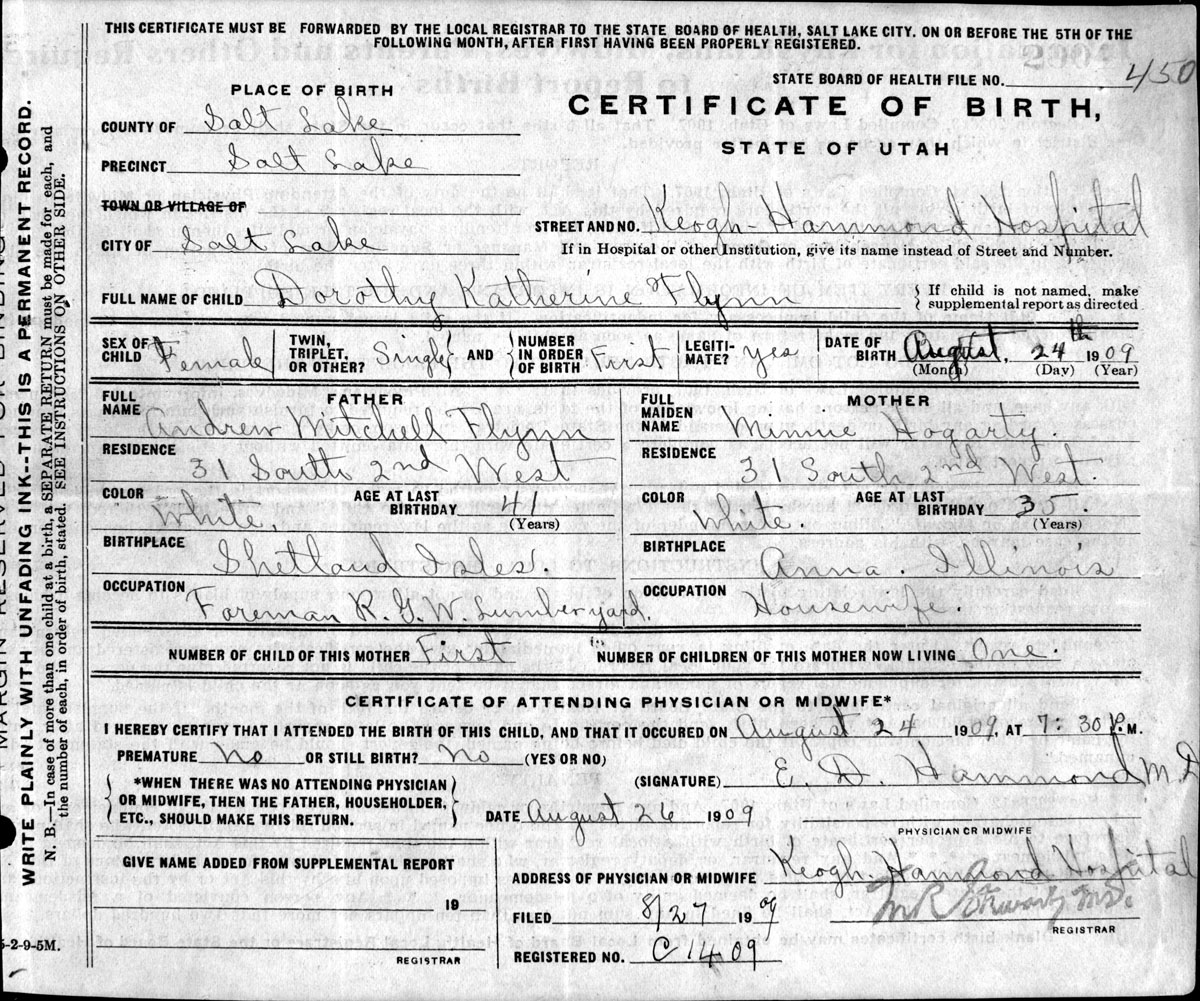 THIS CERTIFICATE MUST BE FORWARDED BY THE LOCAL REGISTRAR TO THE STATE BOARD OF HEALTH, SALT LAKE CITY. ON OR BEFORE THE 5TH OF THE
FOLLOWING MONTH, AFTER FIRST HAVING BEEN PROPERLY REGISTERED.
STATE BOARD OF HEALTH FILE NO. 450
PLACE OF BIRTH
CERTIFICATE OF BIRTH,
STATE OF UTAH
COUNTY OF Salt Lake
PRECINCT Salt Lake
TOWN OR VILLAGE OF
STREET AND NO. Keogh-Hammond Hospital
CITY OF Salt Lake
If in Hospital or other Institution, give its name instead of Street and Number.
FULL NAME OF CHILD Dorothy Katherine Flynn
If child is not named, make
supplemental report as directed
SEX OF CHILD Female
TWIN, TRIPLET, OR OTHER? Single AND NUMBER IN ORDER OF BIRTH First
LEGITIMATE? yes
DATE OF BIRTH August, 24th 1909
(Month) (Day) (Year)
FATHER
FULL NAME Andrew Mitchell Flynn
RESIDENCE 31 South 2nd West
COLOR White, AGE AT LAST BIRTHDAY 41
(Years)
BIRTHPLACE Shetland Isles.
OCCUPATION Foreman R.G.W. Lumberyard.
MOTHER
FULL MAIDEN NAME Minnie Hogarty.
RESIDENCE 31 South, 2nd West.
COLOR White. AGE AT LAST BIRTHDAY 35.
(Years)
BIRTHPLACE Anna. Illinois
OCCUPATION Housewife.
NUMBER OF CHILD OF THIS MOTHER First NUMBER OF CHILDREN OF THIS MOTHER NOW LIVING One.
CERTIFICATE OF ATTENDING PHYSICIAN OR MIDWIFE*
I HEREBY CERTIFY THAT I ATTENDED THE BIRTH OF THIS CHILD, AND THAT IT OCCURED ON August 24 1909, AT 7:30 P.M.
PREMATURE No OR STILL BIRTH? No (YES OR NO)
*WHEN THERE WAS NO ATTENDING PHYSICIAN
OR MIDWIFE, THEN THE FATHER, HOUSEHOLDER,
ETC., SHOULD MAKE THIS RETURN.
(SIGNATURE) E. D. Hammond M.D
DATE August 26 1909
PHYSICIAN OR MIDWIFE
GIVE NAME ADDED FROM SUPPLEMENTAL REPORT
19
REGISTRAR
ADDRESS OF PHYSICIAN OR MIDWIFE Keogh-Hammond Hospital
FILED 8/27 1909
M.D.
REGISTRAR
REGISTERED NO. C1409
5-2-9-5M.
WRITE PLAINLY WITH UNFADING INK--THIS IS A PERMANENT RECORD.
N. B.—In case of more than one child at a birth, a SEPARATE RETURN must be made for each, and
the number of each, in order of birth, stated. SEE INSTRUCTIONS ON OTHER SIDE.